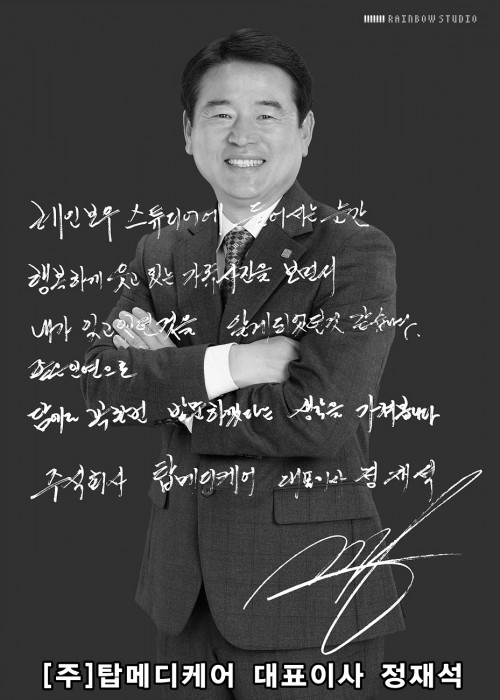 RAINBOW STUDIO
레인보우 스튜디어에 들어서는 순간
행복하게 웃고 있는 가족사진을 보면서
내가 잊고있던것을 알게되었던것 같습니다.
인연으로
담에 꼭한번 방문하겠다는 생각을 가져봅니다
주식회사 탑메디케어 대표이사 정재석
[주]탑메디케어 대표이사 정재석